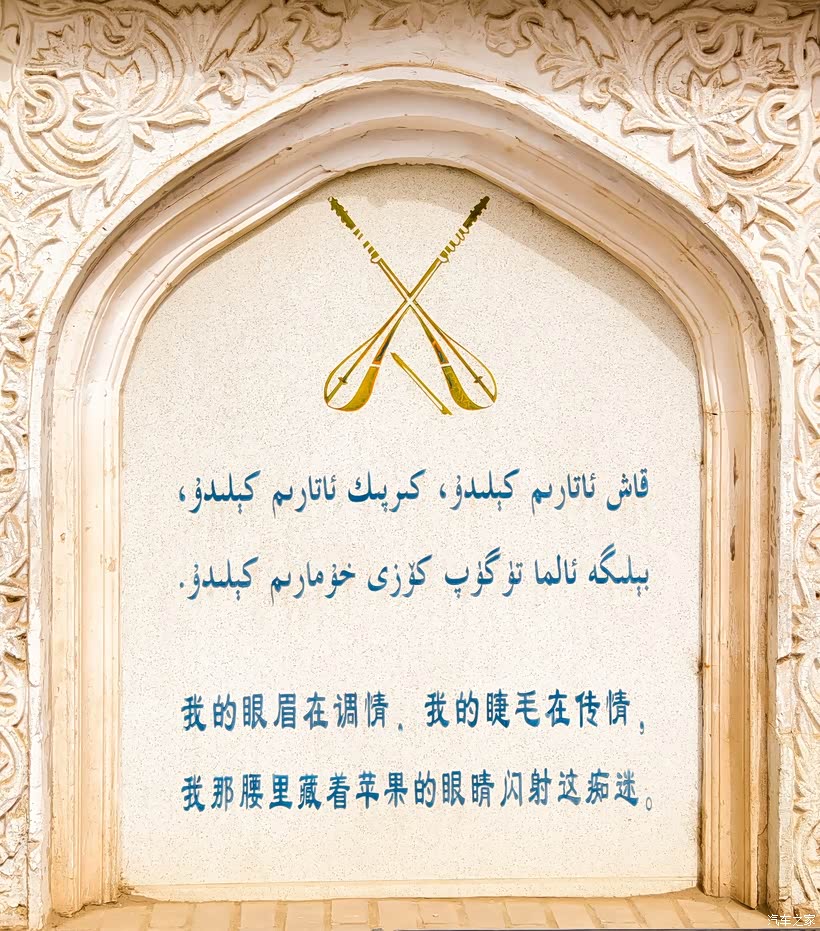 قاش ئاتارىم كېلىدۇ، كىرپىك ئاتارىم كېلىدۇ،
بېلىگە ئالما تۈگۈپ كۆزى خۇمارىم كېلىدۇ.
我的眼眉在调情．我的睫毛在传情，
我那腰里藏着苹果的眼睛闪射这痴迷。
汽车之家